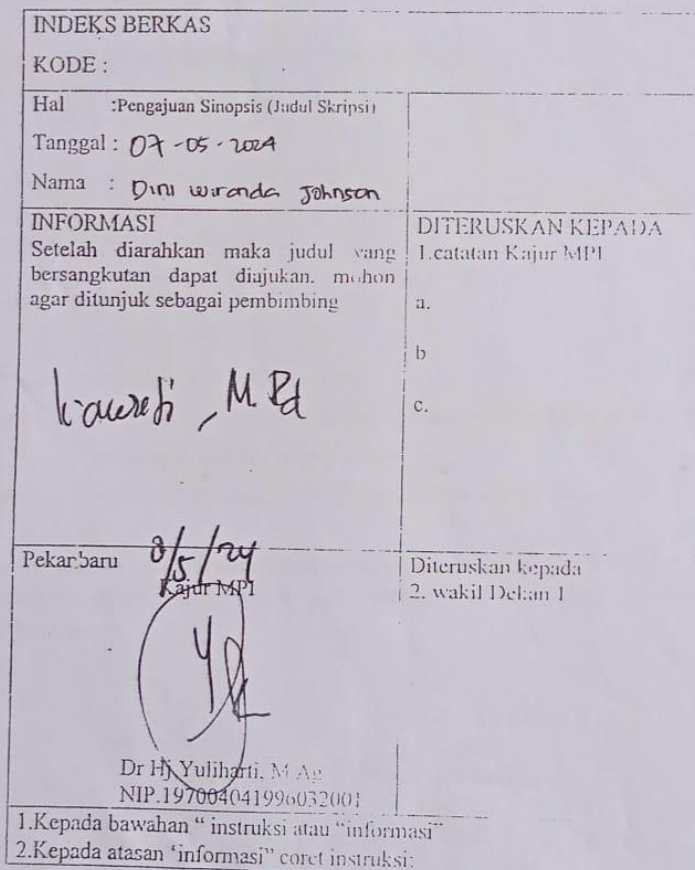 INDEKS BERKAS
KODE :
Hal :Pengajuan Sinopsis (Judul Skripsi)
Tanggal : 07-05-2024
Nama : Dini wiranda Johnson
INFORMASI
Setelah diarahkan maka judul yang
bersangkutan dapat diajukan. mohon
agar ditunjuk sebagai pembimbing
, M.Pd
DITERUSKAN KEPADA
1.catatan Kajur MPI
a.
b
c.
Pekanbaru 8/5/24
Kajur MPI
Dr Hj Yuliharti, M Ag
NIP.197004041996032001
Diteruskan kepada
2. wakil Dekan 1
1.Kepada bawahan “ instruksi atau “informasi”
2.Kepada atasan ‘informasi” coret instruksi: